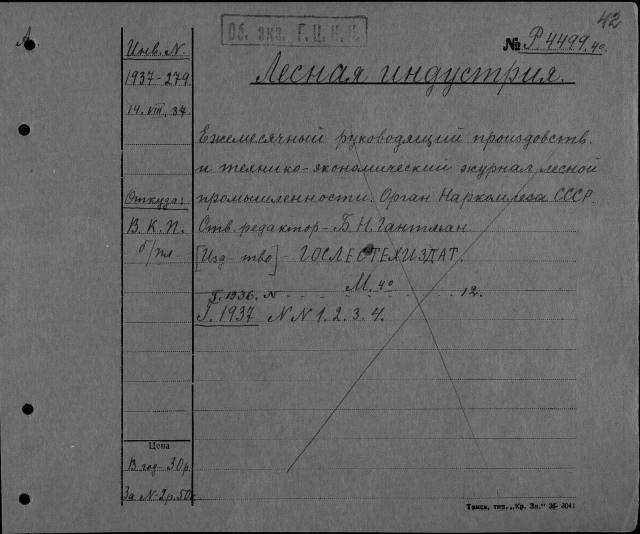 42
Об. экз. Г.Ц.К.П.
А.
№ Р.4499.40.
Инв. N.
1937-279
14.VIII.37
Лесная индустрия.
Ежемесячный руководящий производств.
и технико-экономический журнал лесной
промышленности. Орган Наркомлеса СССР.
Откуда:
В. К. П.
б/пл
Отв. редактор - Б. Н. Гантман
[Изд-тво] - ГОСЛЕСТЕХИЗДАТ.
М. 40
Г. 1936. N - - - - - - 12.
Г. 1937 N N 1. 2. 3. 4.
Цена
В год - 30 р.
За N - 2 р. 50 к
Томск, тип. „Кр. Зн." 36 3041